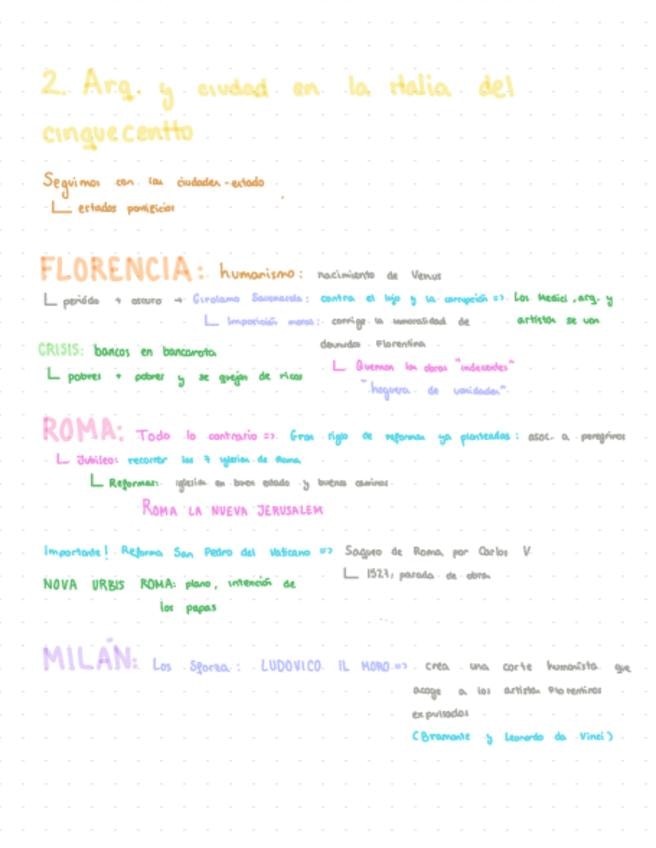 2. Arq. y ciudad en la italia del
cinquecentto
Seguimos con las ciudades-estado
estados pontificios
FLORENCIA: humanismo: nacimiento de Venus
periódo + oscuro → Girolamo Savonarola: contra el lujo y la corrupción => Los Medici, arq. y
Imposición moral: corrige la inmoralidad de artistas se van
desnudos Florentina
CRISIS: bancos en bancarota
Queman las obras "indecentes"
pobres + pobres y se quejan de ricos
"hoguera de vanidades"
ROMA: Todo lo contrario => Gran siglo de reformas ya planteadas: asoc. a peregrinos
Jubileo: recorrer las 7 iglesias de Roma
Reformas: iglesias en buen estado y buenos caminos
ROMA LA NUEVA JERUSALEM
Importante! Reforma San Pedro del Vaticano => Saqueo de Roma, por Carlos V
1527, parada de obras
NOVA URBIS ROMA: plano, intención de
los papas
MILÁN: Los Sforza: LUDOVICO IL MORO => crea una corte humanista que
acoge a los artistas Florentinos
expulsados
(Bramante y Leonardo da Vinci)